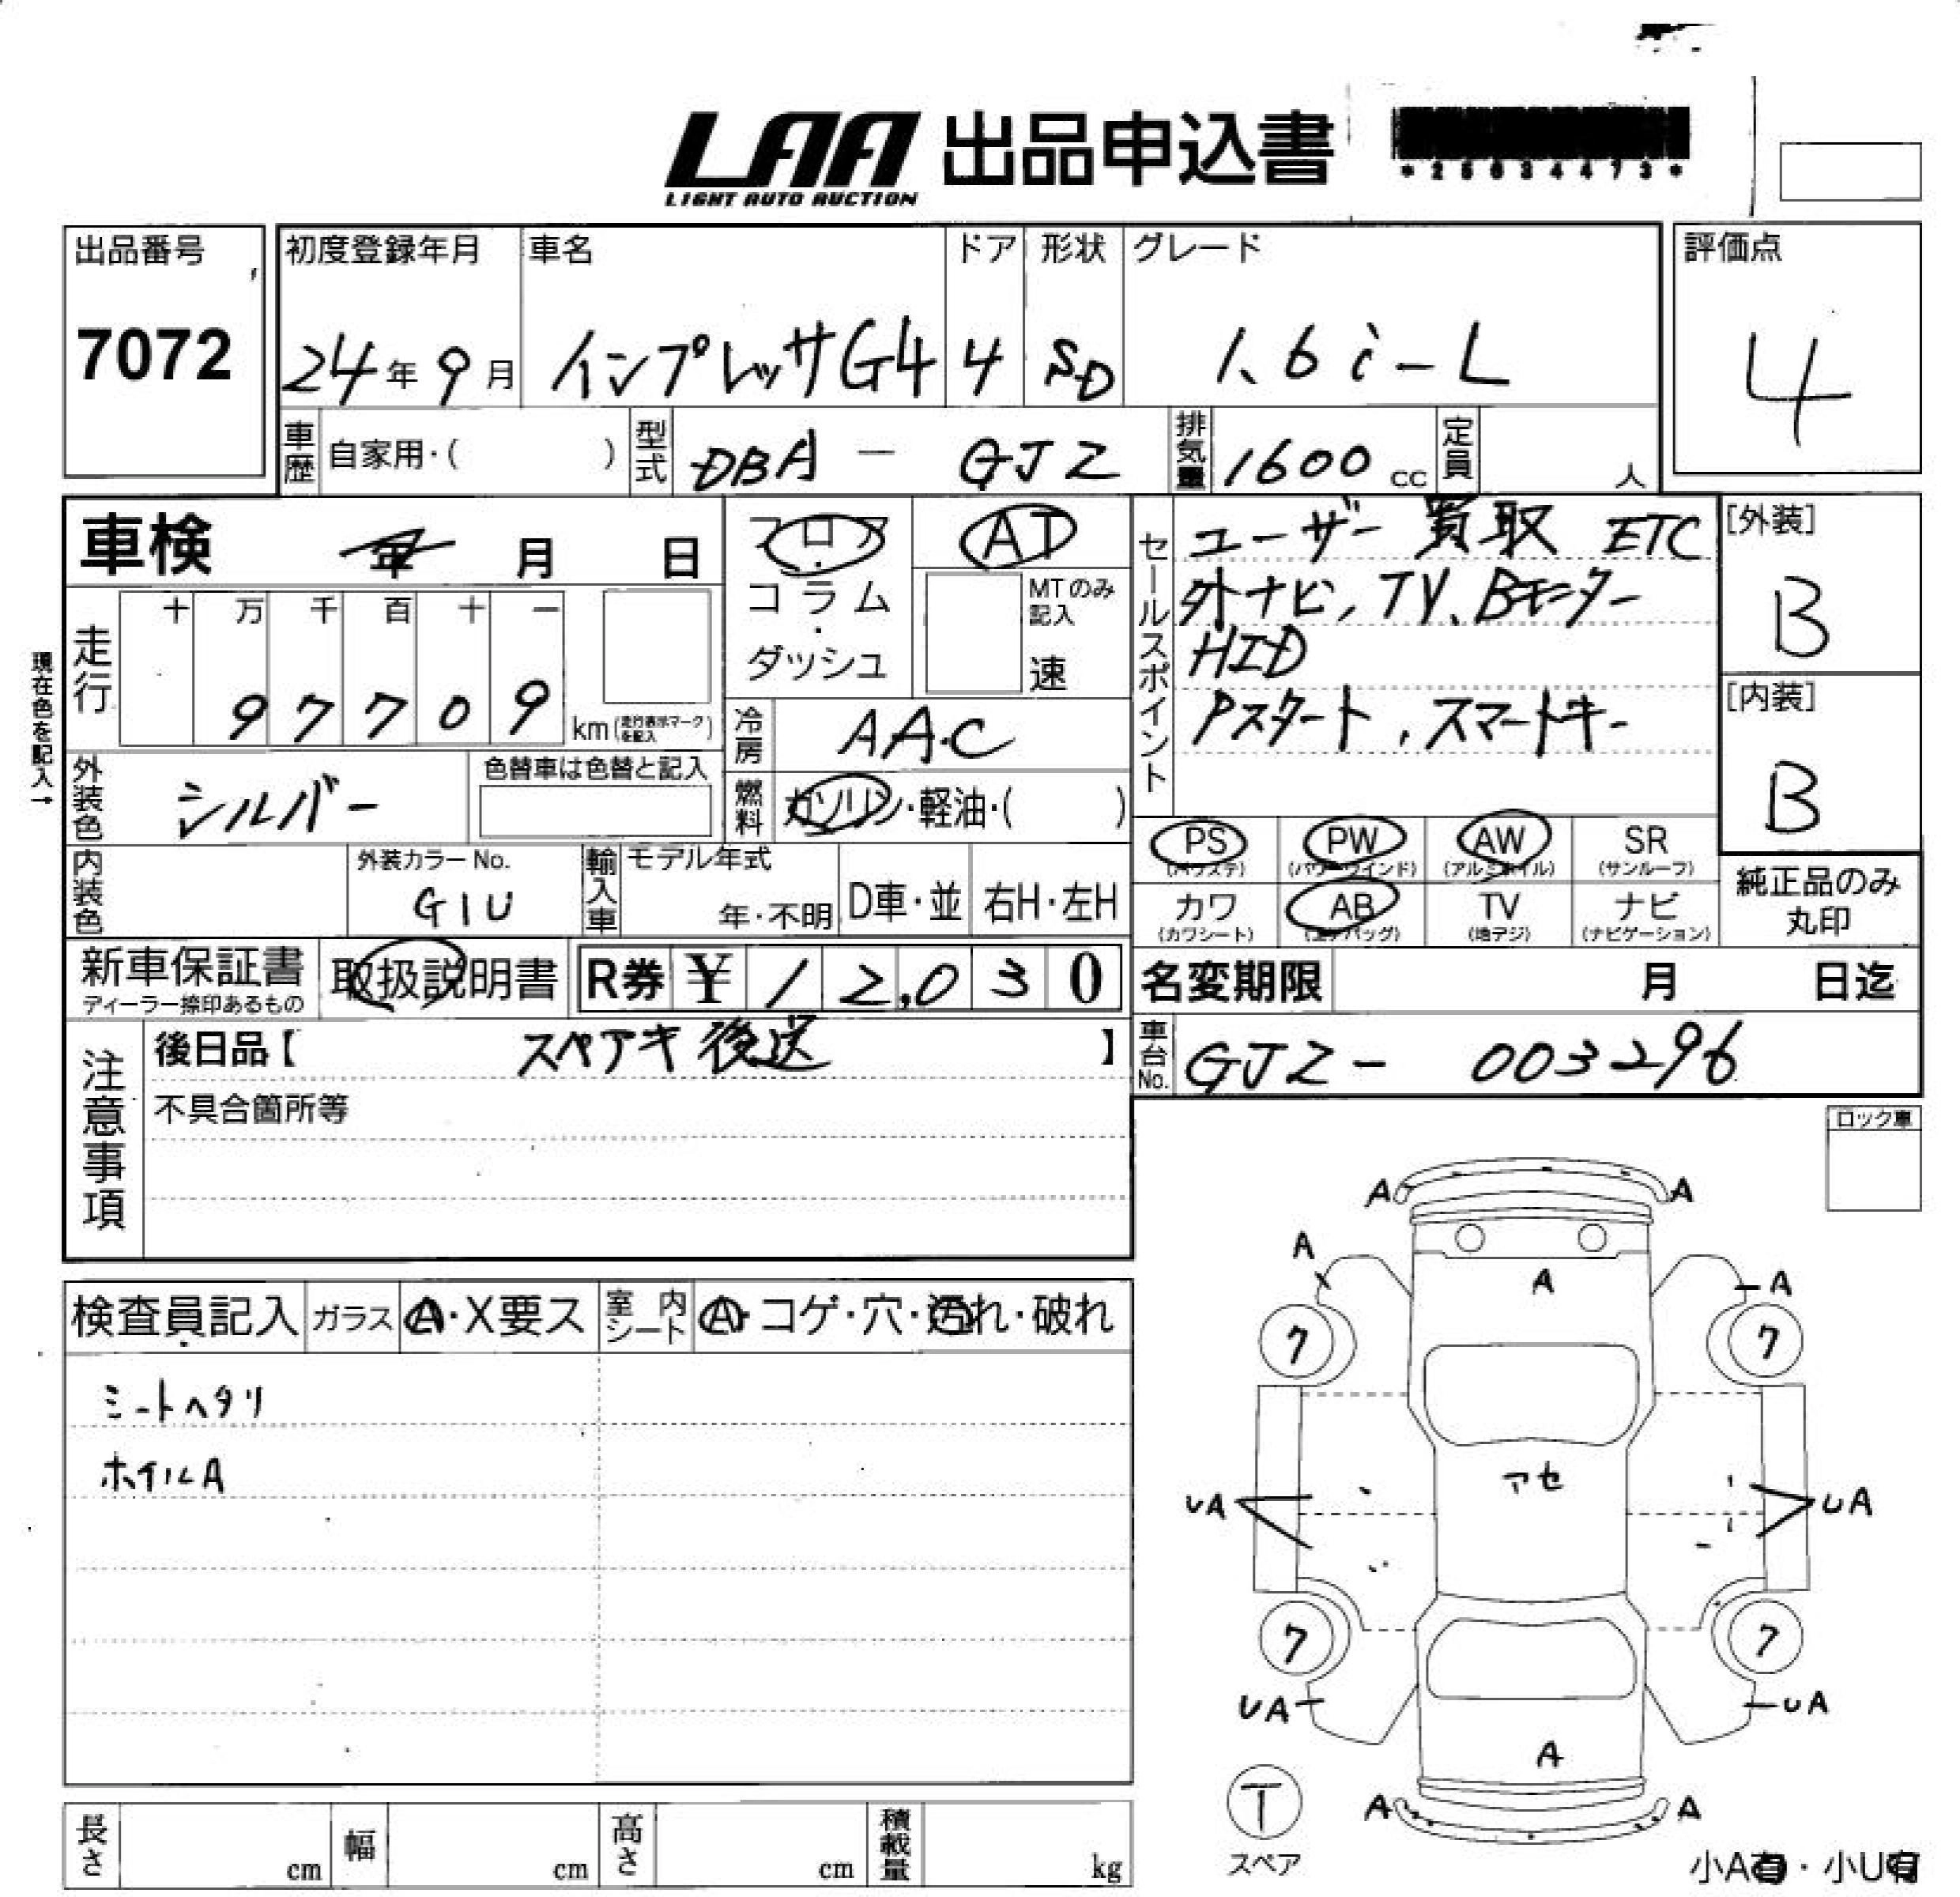 LAA 出品申込書
LIGHT AUTO AUCTION
*25034473*
出品番号
7072
初度登録年月
24年 9月
車名
インプレッサG4
ドア
4
形状
SD
グレード
1.6i-L
評価点
4
車歴 自家用・( )
型式 DBA - GJ2
排気量 1600 cc
定員 人
車検 年 月 日
フロア・コラム・ダッシュ
AT
MTのみ記入
速
セールスポイント
ユーザー買取 ETC
外ナビ, TV、Bモニター
HID
Pスタート, スマートキー
[外装]
B
[内装]
B
現在色を記入→
走行
十 万 千 百 十 一
9 7 7 0 9
km(走行表示マークを記入)
冷房 AAC
燃料 ガソリン・軽油・( )
外装色 シルバー
色替車は色替と記入
内装色
外装カラーNo.
G1U
輸入車
モデル年式
年・不明
D車・並
右H・左H
PS
(パワステ)
PW
(パワーウインド)
AW
(アルミホイル)
SR
(サンルーフ)
カワ
(カワシート)
AB
(エアバッグ)
TV
(地デジ)
ナビ
(ナビゲーション)
純正品のみ
丸印
新車保証書
ディーラー捺印あるもの
取扱説明書
R券 ¥ 12,030
名変期限 月 日迄
注意事項
後日品【 スペアキ後送 】
不具合箇所等
車台No. GJ2- 003296
ロック車
検査員記入
ガラス A・X要ス
室内シート A・コゲ・穴・汚れ・破れ
シートヘタリ
ホイルA
A A
A
A
A
7 7
アセ
UA UA
7 7
UA UA
A
A A
T
スペア
小A有・小U有
長さ cm
幅 cm
高さ cm
積載量 kg